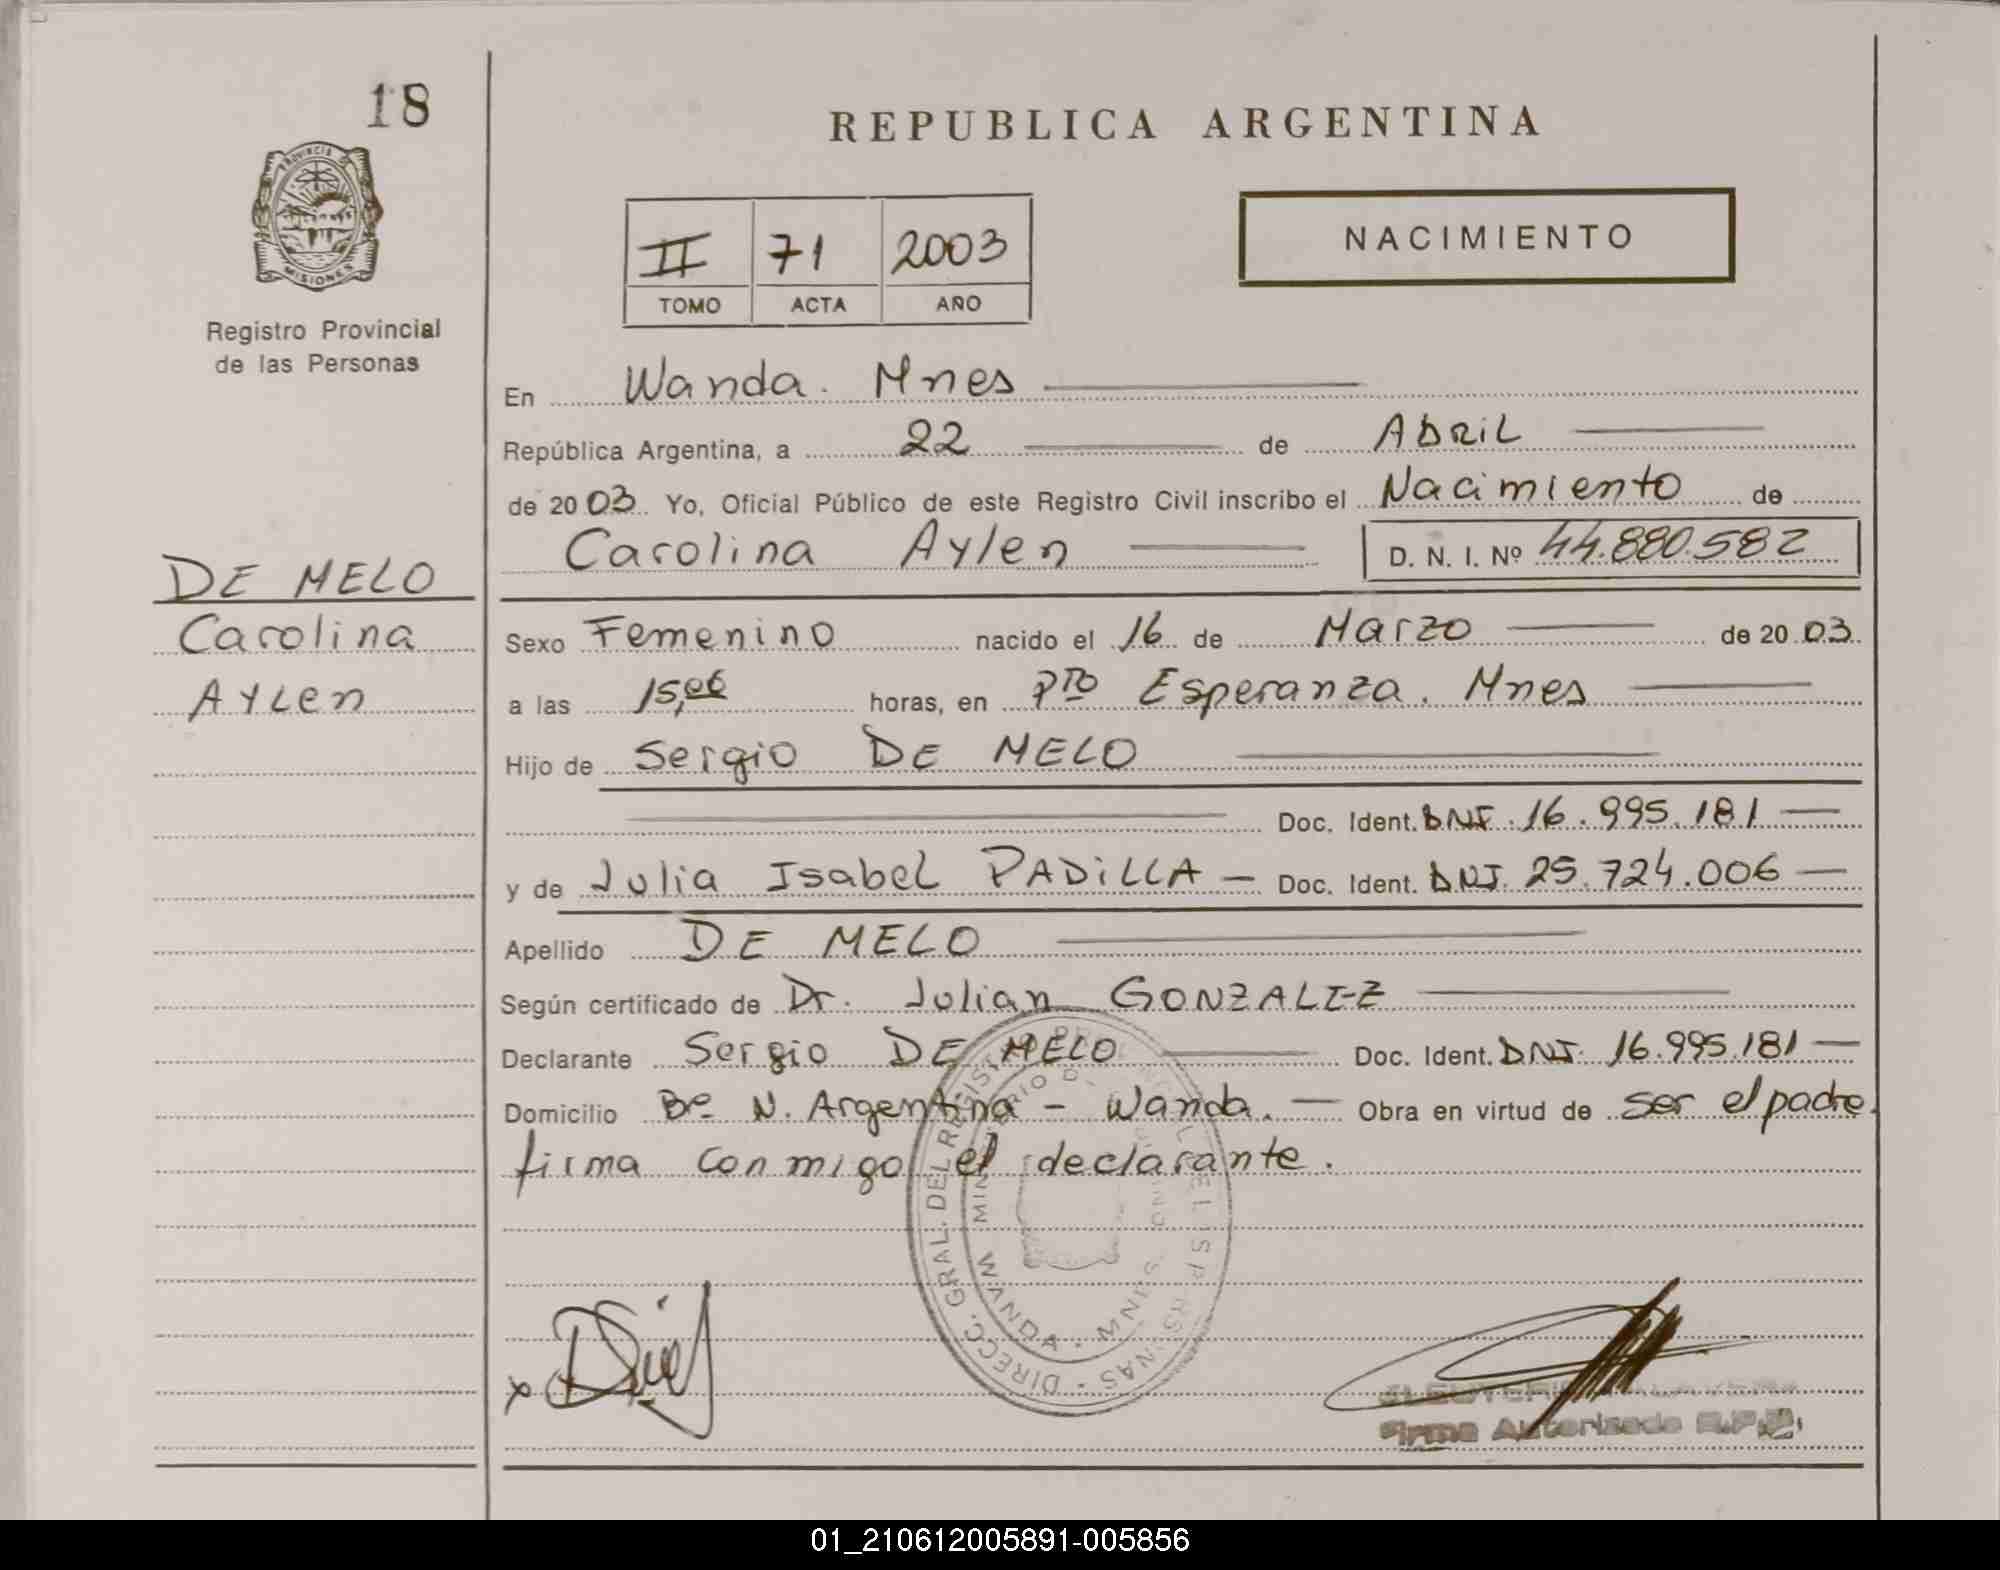 18
PROVINCIA DE
MISIONES
Registro Provincial
de las Personas
DE MELO
Carolina
Aylen
REPUBLICA ARGENTINA
II 71 2003
TOMO ACTA AÑO
NACIMIENTO
En Wanda. Mnes
República Argentina, a 22 de Abril
de 2003. Yo, Oficial Público de este Registro Civil inscribo el Nacimiento de
Carolina Aylen D. N. I. Nº 44.880.582
Sexo Femenino nacido el 16 de Marzo de 2003.
a las 15,00 horas, en Pto Esperanza. Mnes
Hijo de Sergio DE MELO
Doc. Ident. DNI. 16.995.181
y de Julia Isabel PADILLA Doc. Ident. DNI. 25.724.006
Apellido DE MELO
Según certificado de Dr. Julian GONZALEZ
Declarante Sergio DE MELO Doc. Ident. DNI. 16.995.181
Domicilio Bº N. Argentina - Wanda. Obra en virtud de ser el padre.
firma conmigo el declarante.
DIRECC. GRAL. DEL
WANDA - MNES.
Firma Autorizada R.P.P.
01_210612005891-005856